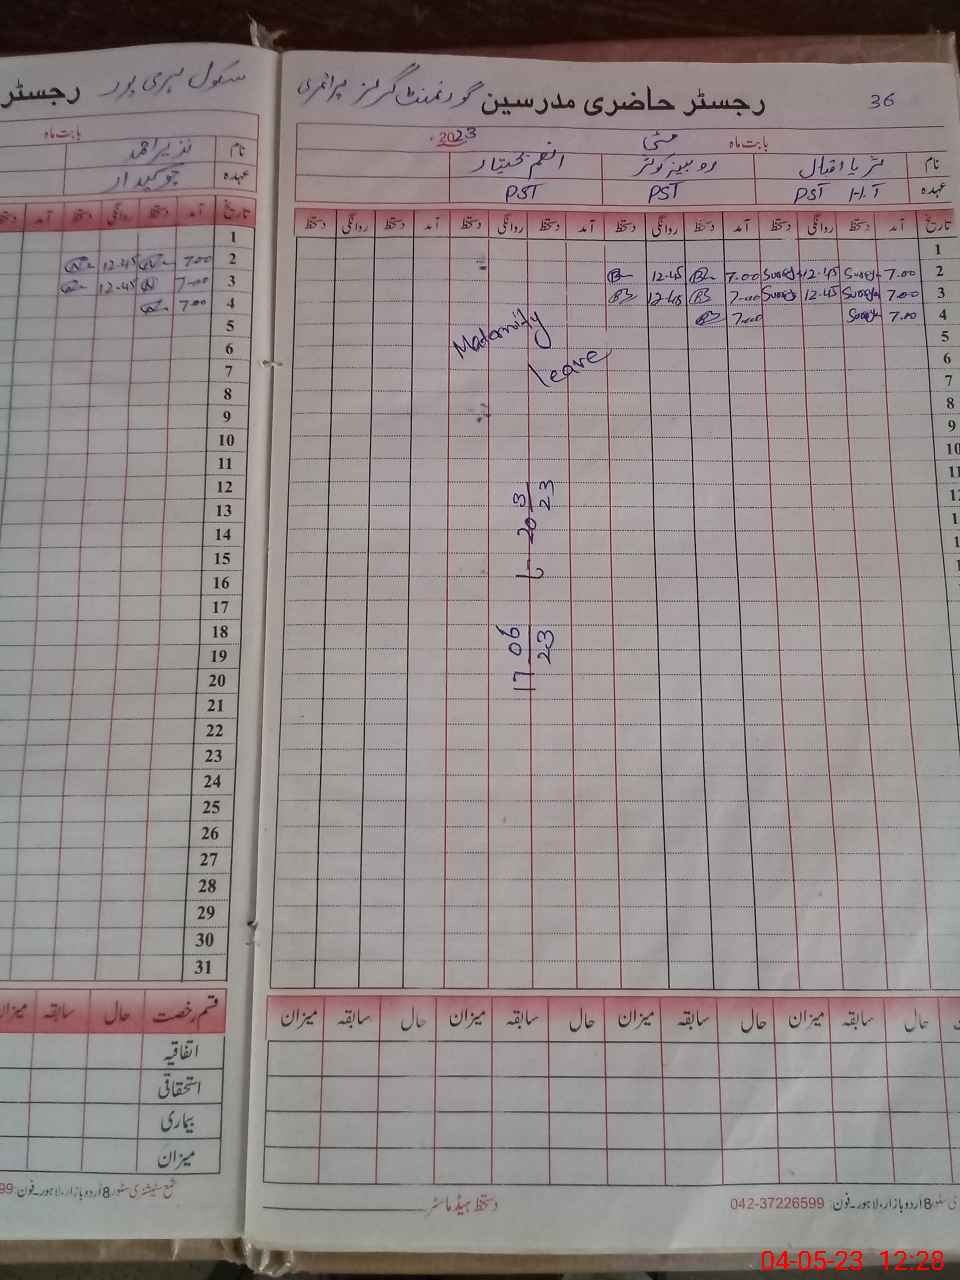 36 رجسٹر حاضری مدرسین گورنمنٹ گرلز پرائمری
بابت ماہ مئی 2023
نام ثریا اقبال روبینہ کوثر انعم بختیار
عہدہ H.T PST PST PST
تاریخ آمد دستخط روانگی دستخط آمد دستخط روانگی دستخط آمد دستخط روانگی دستخط آمد دستخط روانگی دستخط
1
2 7.00 12.45 7.00 12.45
3 7.00 12.45 7.00 12.45
4 7.00 7.00
5
6
7
8
9
10
11
12
Maternity
leave
20 3/23
17 06/23
حال سابقہ میزان حال سابقہ میزان حال سابقہ میزان حال سابقہ میزان
دستخط ہیڈ ماسٹر
8 اُردو بازار، لاہور۔ فون: 042-37226599
سکول ہری پور
رجسٹر
بابت ماہ
نام نذیر احمد
عہدہ چوکیدار
تاریخ آمد دستخط روانگی دستخط آمد دستخط
1
2 7.00 12.45
3 7.00 12.45
4 7.00
5
6
7
8
9
10
11
12
13
14
15
16
17
18
19
20
21
22
23
24
25
26
27
28
29
30
31
قسم رخصت حال سابقہ میزان
اتفاقیہ
استحقاقی
بیماری
میزان
شمع سٹیشنری سٹور 8 اُردو بازار، لاہور۔ فون: 99
04-05-23 12:28